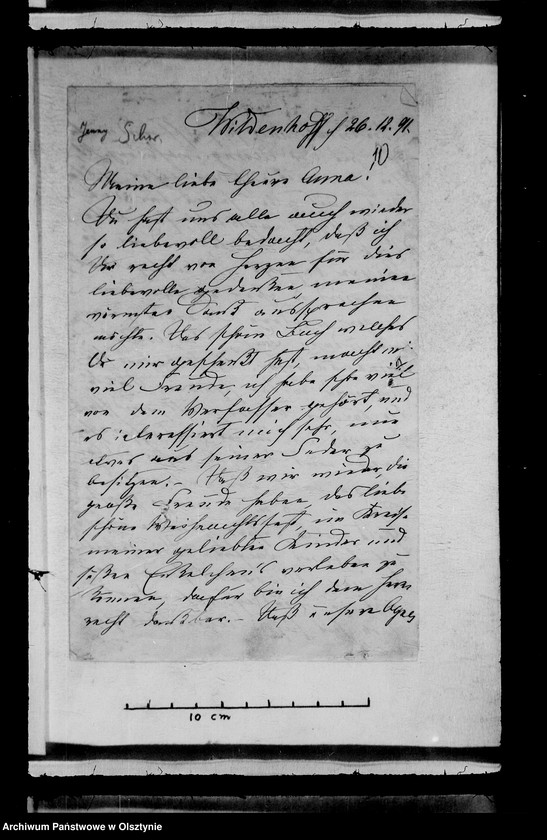 Jenny Schw.
Wildenhoff d 26.12.91.
10
Meine liebe theure Anna!
Du hast uns alle auch wieder
so liebevoll bedacht, daß ich
Dir recht von Herzen für dies
liebevolle gedenken meinen
wärmsten Dank aussprechen
möchte. Das schöne Buch welches
Du mir geschenkt hast, macht mir
viel Freude, ich habe sehr viel
von dem Verfasser gehört, und
es interessiert mich sehr, nun
etwas aus seiner Feder zu
besitzen. – Daß wir wieder die
große Freude haben das liebe
schöne Weihnachtsfest, im Kreise
meiner geliebten Kinder und
süßen Enkelchen's verleben zu
können, dafür bin ich dem Herrn
recht dankbar. – Daß unsere
10 cm
Archiwum Państwowe w Olsztynie